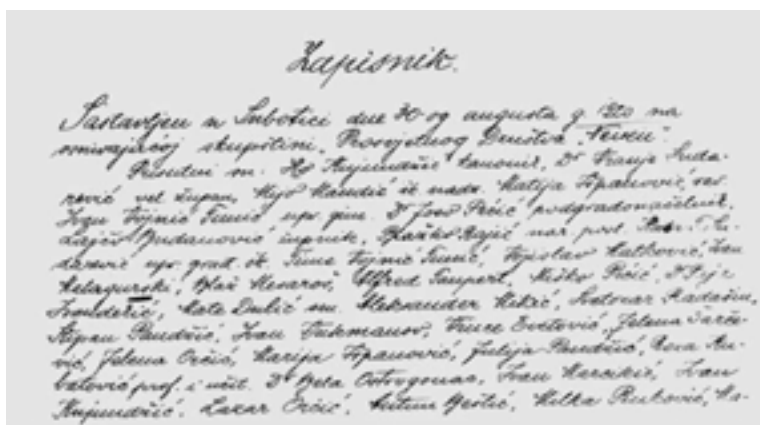 Zapisnik.
Sastavljen u Subotici dne 30 og augusta g. 1920 na
osnivajućoj skupštini, Prosvjetnog Društva „Neven“.
Prisutni su: Kujundžić kanonik, Dr Franje Suda-
rević vel. župan, Mijo Mandić šk. nadz. Matija Išpanović,
Ivan Vojnić Tunić upr. gim. Dr Joso Pećić podgradonačelnik,
Lajčo Budanović župnik, Blaško Rajić nar. posl. Su-
darević upr. grad. Time Vojnić Tunić, Vojislav Matković, Ivan
Malagurski, Blaž Mesaroš, Alfred Taupert, Miško Pićić,
Ivandekić, Mate Dulić Aleksander Kikić, Svetozar Radašin,
Stipan Pandžić, Ivan Tukmanov, Vince Evetović, Jelena Šarče-
vić, Jelena Orčić, Marija Išpanović, Julija Pandžić,
batović prof. i učit. Dr Bela Ostrogonac, Ivan Marcikić, Ivan
Kujundžić. Lazar Orčić, Antun Beštić, Milka Vuković, Ma-